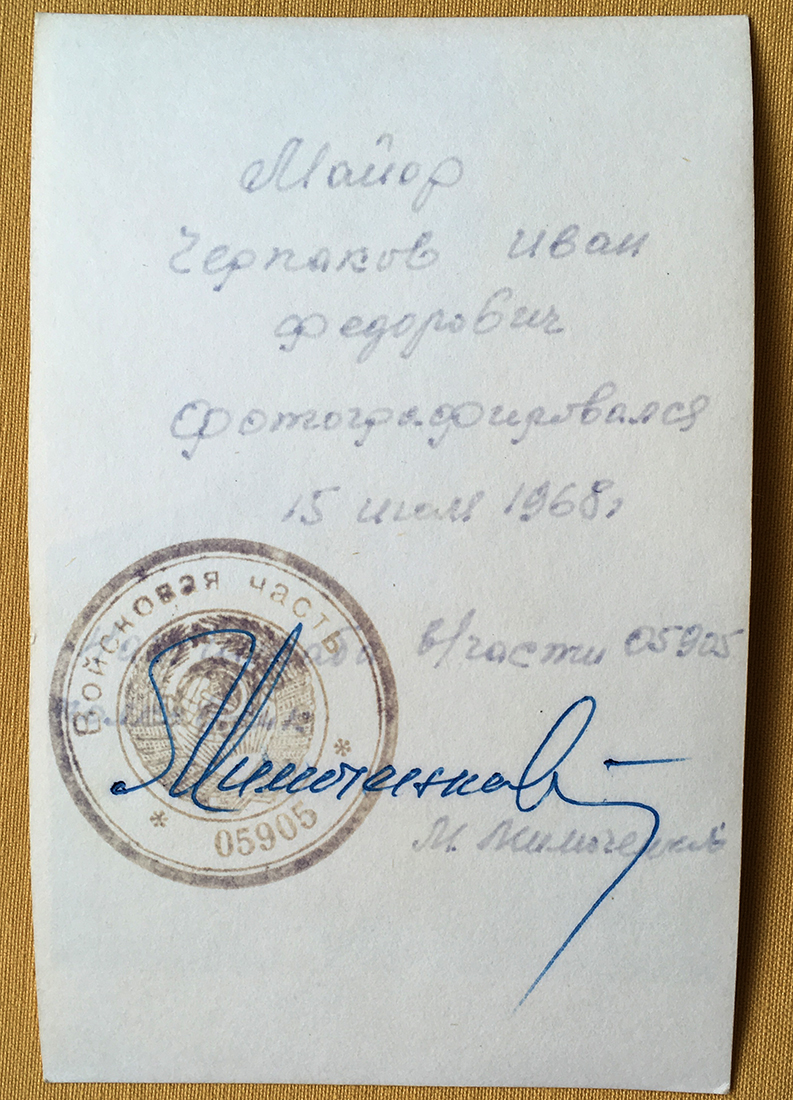 Майор
Черпаков Иван
Федорович
Фотографировался
15 июля 1968г
в/части 05905
М.
Войсковая часть
* 05905 *